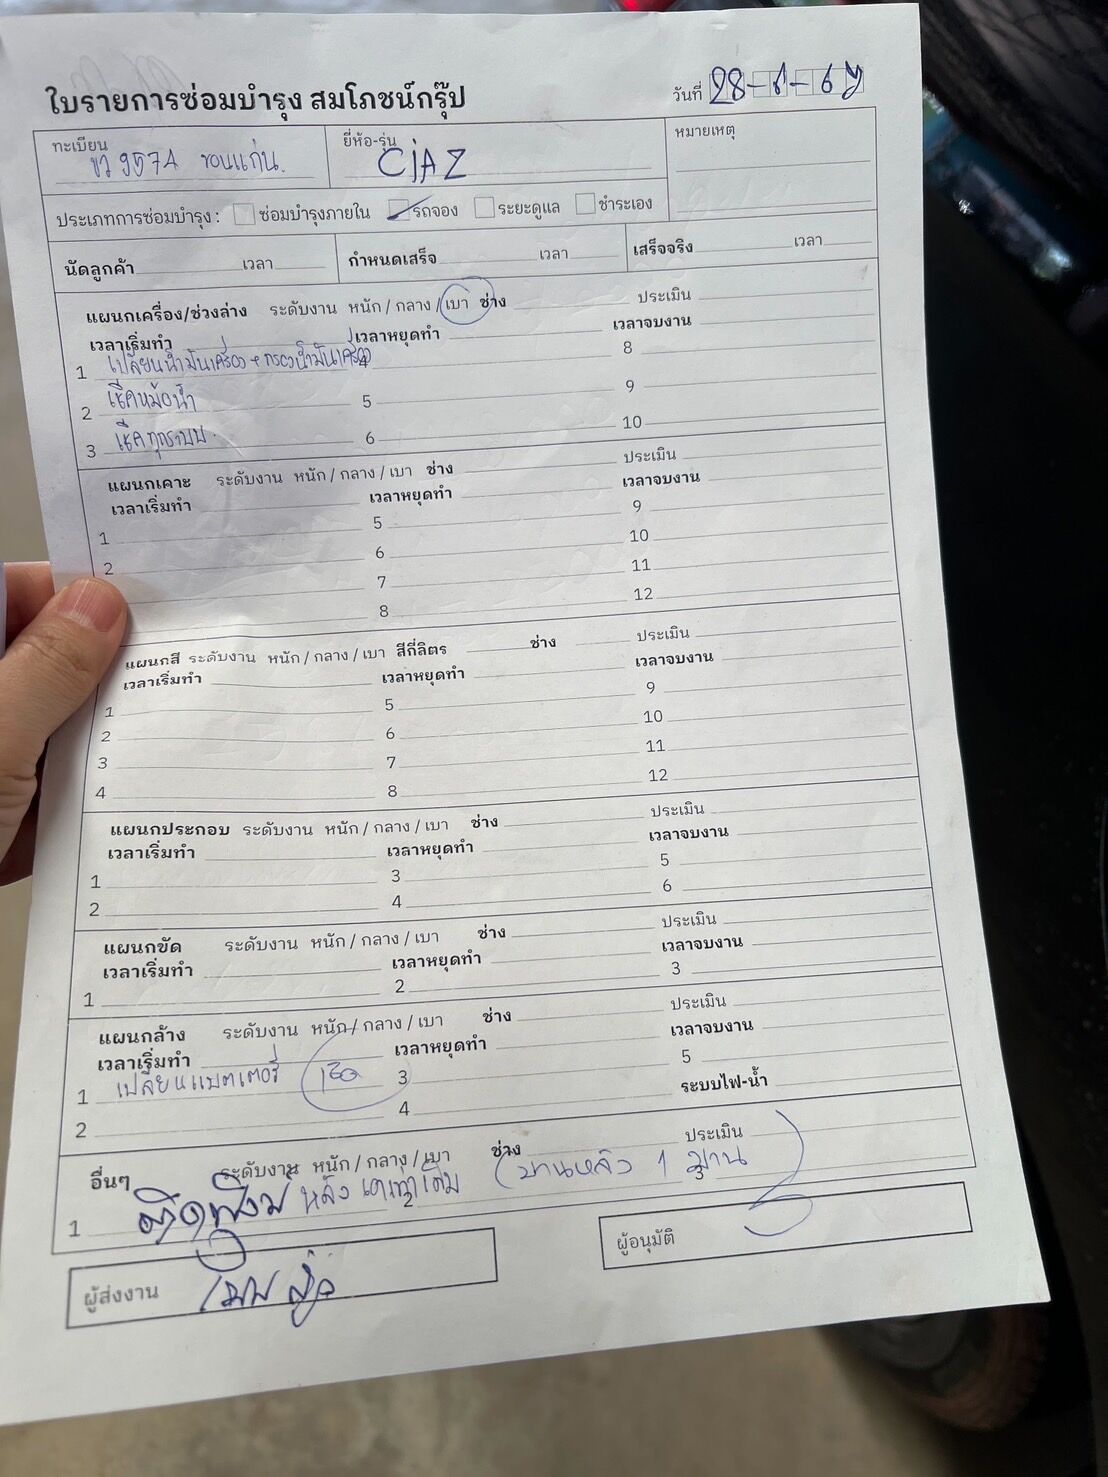 ใบรายการซ่อมบำรุง สมโภชน์กรุ๊ป
วันที่ 28-6-67
ทะเบียน ขว 9574 ขอนแก่น.
ยี่ห้อ-รุ่น CiAZ
หมายเหตุ
ประเภทการซ่อมบำรุง : ซ่อมบำรุงภายใน รถจอง ระยะดูแล ชำระเอง
นัดลูกค้า เวลา กำหนดเสร็จ เวลา เสร็จจริง เวลา
แผนกเครื่อง/ช่วงล่าง ระดับงาน หนัก / กลาง / เบา ช่าง ประเมิน
เวลาเริ่มทำ เวลาหยุดทำ เวลาจบงาน
1 เปลี่ยนน้ำมันเครื่อง + กรองน้ำมันเครื่อง 4 8
2 เช็คหม้อน้ำ 5 9
3 เช็คทุกระบบ. 6 10
แผนกเคาะ ระดับงาน หนัก / กลาง / เบา ช่าง ประเมิน
เวลาเริ่มทำ เวลาหยุดทำ เวลาจบงาน
1 5 9
2 6 10
7 11
8 12
แผนกสี ระดับงาน หนัก / กลาง / เบา สีกี่ลิตร ช่าง ประเมิน
เวลาเริ่มทำ เวลาหยุดทำ เวลาจบงาน
1 5 9
2 6 10
3 7 11
4 8 12
แผนกประกอบ ระดับงาน หนัก / กลาง / เบา ช่าง ประเมิน
เวลาเริ่มทำ เวลาหยุดทำ เวลาจบงาน
1 3 5
2 4 6
แผนกขัด ระดับงาน หนัก / กลาง / เบา ช่าง ประเมิน
เวลาเริ่มทำ เวลาหยุดทำ เวลาจบงาน
1 2 3
แผนกล้าง ระดับงาน หนัก / กลาง / เบา ช่าง ประเมิน
เวลาเริ่มทำ เวลาหยุดทำ เวลาจบงาน
1 เปลี่ยนแบตเตอรี่ 3 5
2 4 ระบบไฟ-น้ำ
อื่นๆ ระดับงาน หนัก / กลาง / เบา ช่าง ประเมิน
1 ติดฟิล์ม หลัง 2 (บานหลัง 1 บาน) 3
ผู้ส่งงาน
ผู้อนุมัติ